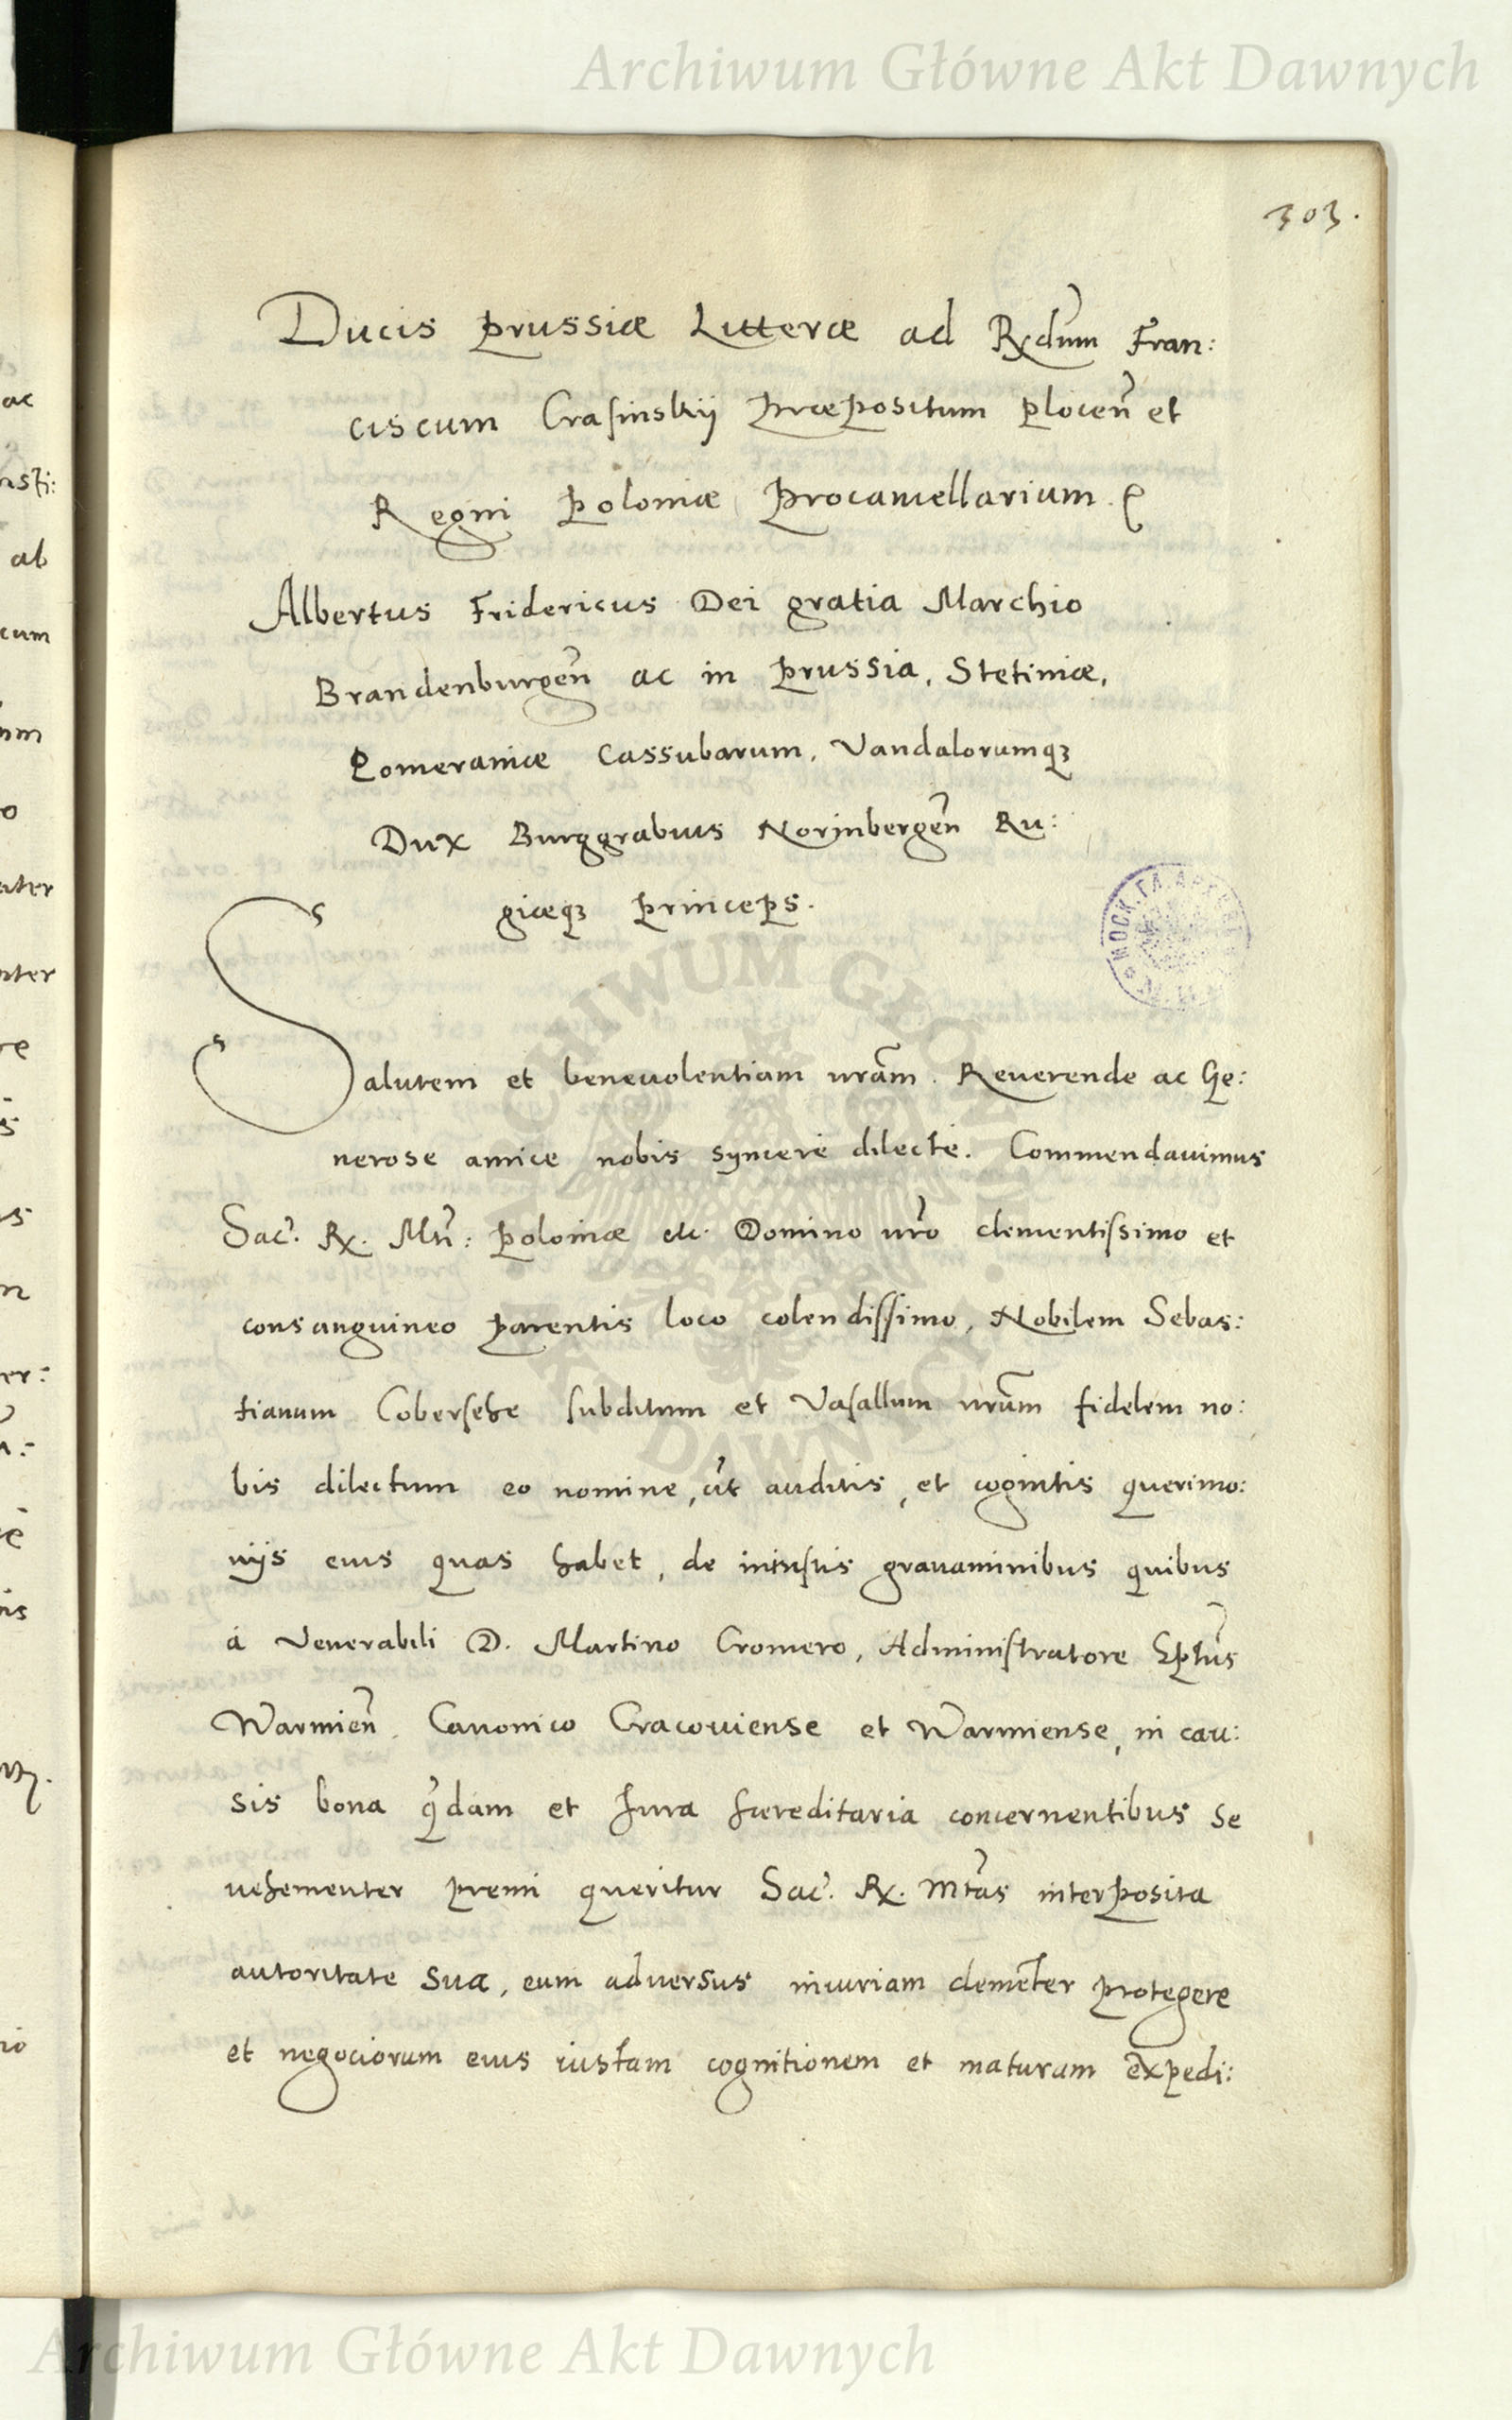 Archiwum Główne Akt Dawnych
303.
Ducis Prussiæ Litteræ ad Rxdum Fran:
ciscum Crasinskij Præpositum Plocen et
Regni Poloniæ Procancellarium.
Albertus Fridericus Dei gratia Marchio
Brandenburgen ac in Prussia, Stetiniæ,
Pomeraniæ Cassubarum, Vandalorumqꝫ
Dux Burggrabius Norinbergen Ru:
giæqꝫ Princeps.
Salutem et beneuolentiam nram. Reuerende ac Ge:
nerose amice nobis syncerè dilecte. Commendauimus
Sac. Rx. Mti: Poloniæ etc. Domino nro clementissimo et
consanguineo parentis loco colendissimo, Nobilem Sebas:
tianum Cobersehe subditum et Vasallum nrum fidelem no:
bis dilectum eo nomine, ut auditis, et cognitis querimo:
nijs eius quas habet, de iniustis grauaminibus quibus
à Venerabili D. Martino Cromero, Administratore Eptus
Warmien. Canonico Cracouiense et Warmiense, in cau:
sis bona qdam et Jura hæreditaria concernentibus se
vehementer premi queritur Sac. Rx. Mtas interposita
autoritate sua, eum aduersus iniuriam clementer protegere
et negociorum eius iustam cognitionem et maturam expedi:
ac
nsti:
ab
cum
um
o
nter
re
is
er:
nis
ARCHIWUM GŁÓWNE AKT DAWNYCH
МОСК. ГЛ. АРХИВ
Archiwum Główne Akt Dawnych